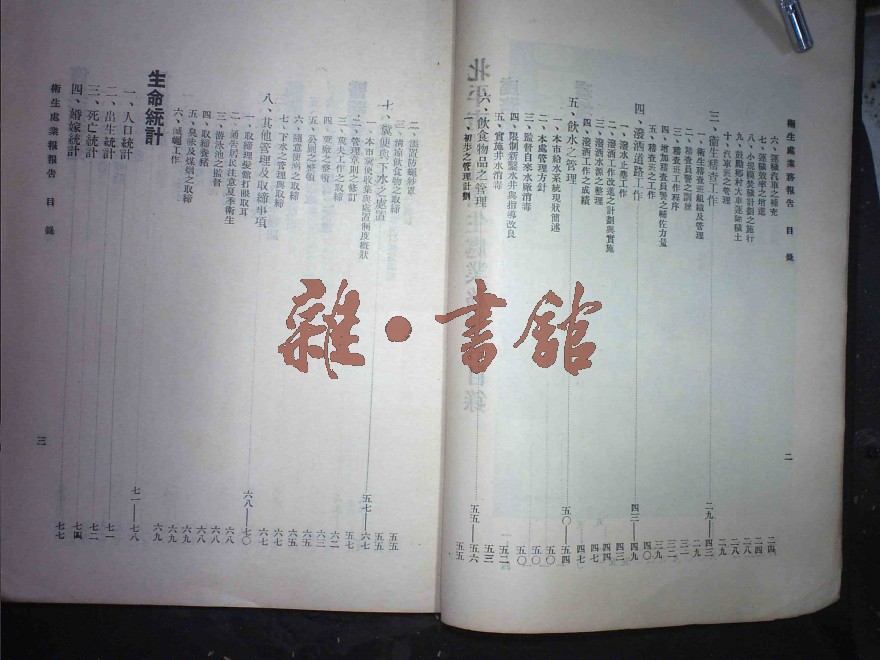 衞生處業務報告　目錄
二
六、運穢汽車之補充 二四
七、運穢效率之增進 二四
八、小規模焚穢計劃之施行 二八
九、鼓勵鄉村大車運除穢土 二八
十、汽車班之管理 二九
三、衞生稽查工作 二九—四三
一、衞生稽查班組織及管理 二九
二、稽查員警之訓練
三、稽查班工作程序
四、增加稽查員警之輔佐力量 三九
五、稽查班之工作 四〇
四、潑洒道路工作 四三—四九
一、潑水止塵工作 四三
二、潑洒工作改進之計劃與實施 四四
三、潑洒水源之整理 四四
四、潑洒工作之成績 四七
五、飲水之管理 五〇—五四
一、本市給水系統現狀簡述 五〇
二、本處管理方針 五〇
三、監督自來水廠消毒 五〇
四、限制新鑿水井與指導改良 五二
五、實施井水消毒 五三
六、飲食物品之管理 五五—五六
一、初步之管理計劃 五五
二、添置防蠅紗罩 五五
三、清涼飲食物之取締 五五
七、糞便與下水之處置 五七—六七
一、本市糞便收集與處置制度概狀 五七
二、管理章則之修訂
三、糞夫工作之取締 六二
四、糞廠之整頓 六三
五、公廁之整頓 六五
六、隨意便溺之取締 六五
七、下水之管理與取締 六七
八、其他管理及取締事項 六八—七〇
一、取締理髮館打眼取耳 六八
二、通告居民注意夏季衞生 六八
三、游泳池之監督 六八
四、取締養豬 六八
五、臭味及煤烟之取締 六九
六、滅蠅工作 六九
生命統計
一、人口統計 七一—七八
二、出生統計 七一
三、死亡統計 七二
四、婚嫁統計 七七
衞生處業務報告　目錄
三
雜·書館